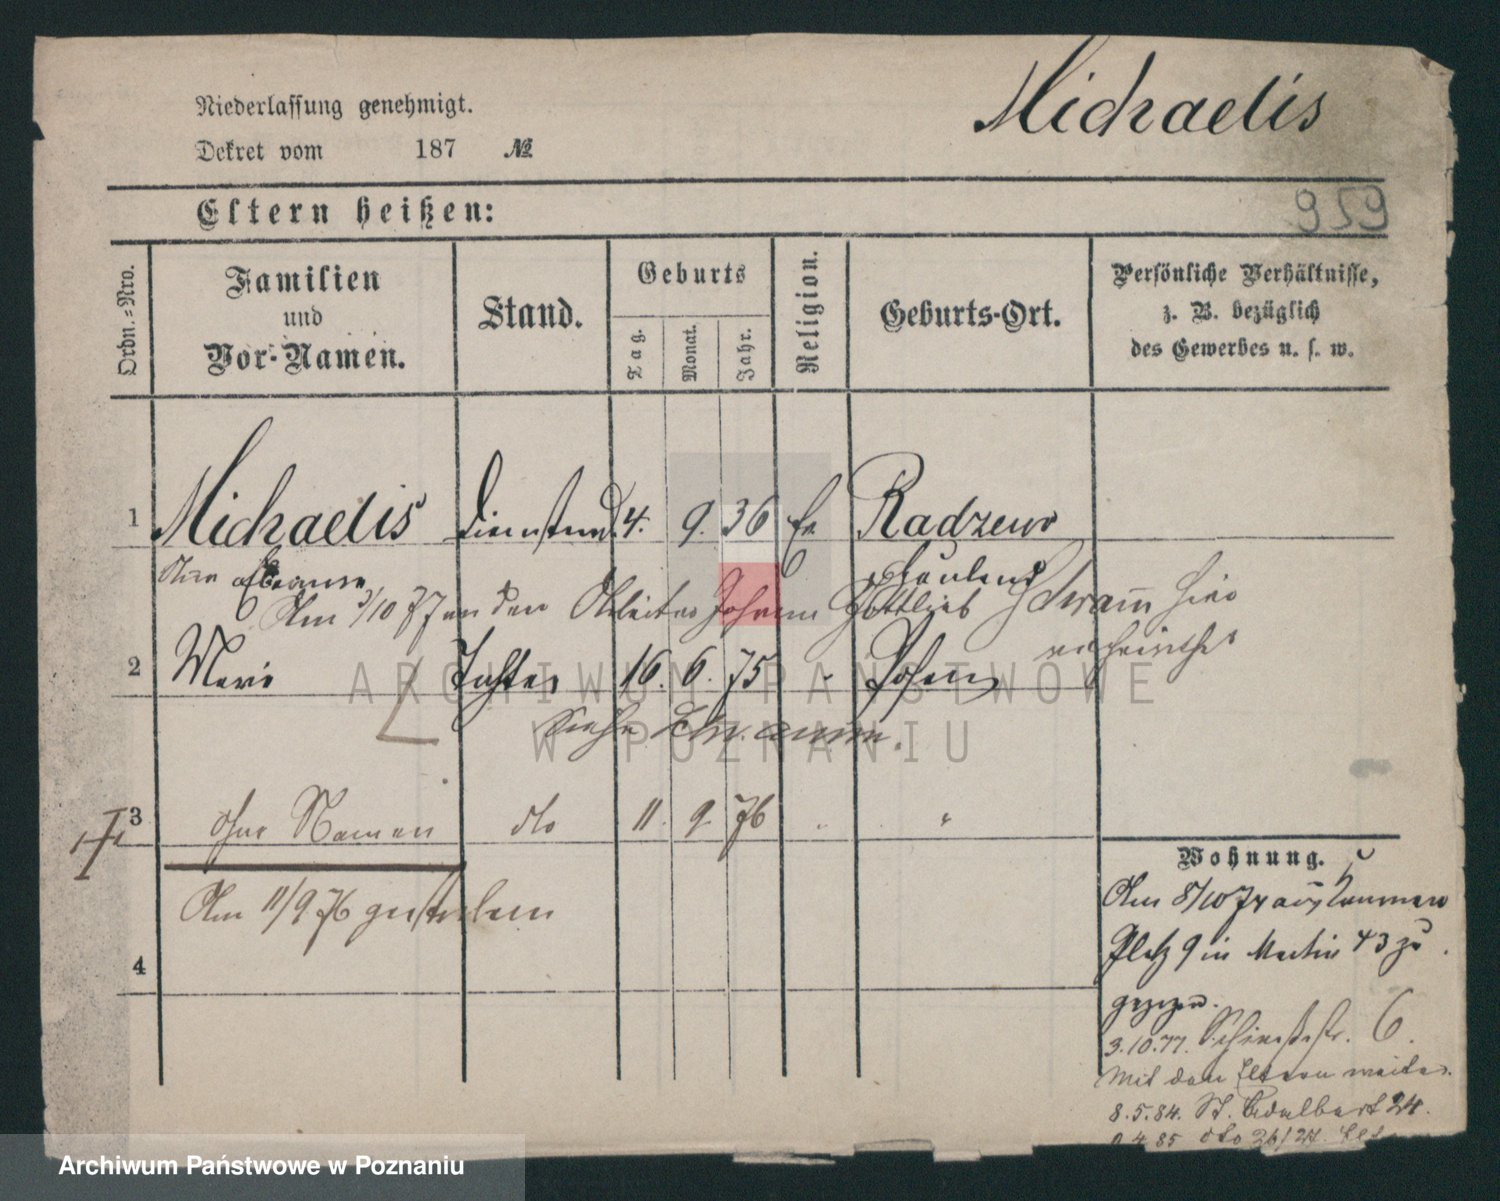 Michaelis
Niederlassung genehmigt.
Dekret vom 187 №
Eltern heißen:
959
Ordn.=Nro.
Familien
und
Vor-Namen.
Stand.
Geburts
Tag.
Monat.
Jahr.
Religion.
Geburts-Ort.
Persönliche Verhältnisse,
z. B. bezüglich
des Gewerbes u. s. w.
1 Michaelis 4. 9. 36 Ev Radzewo
Hauland
Am 3/10 77 an den Arbeiter Johann Gottlieb Schramm hier
verheirathet
2 Marie Tochter 16. 6. 75 Posen
Siehe
3 ohne Namen dto 11. 9. 76 "
Am 11/9 76 gestorben
4
Wohnung.
Am 8/10
Platz 9 in Martin 43 zu
gezogen.
3.10.77. 6.
Mit den Eltern weiter.
8.5.84. St. Adalbert 24.
dto 26/27.
ARCHIWUM PAŃSTWOWE
W POZNANIU
Archiwum Państwowe w Poznaniu